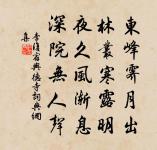 東峰霽月出
林叢寒露明
夜久風漸息
深院無人聲
李復宿興德寺詞典網
集